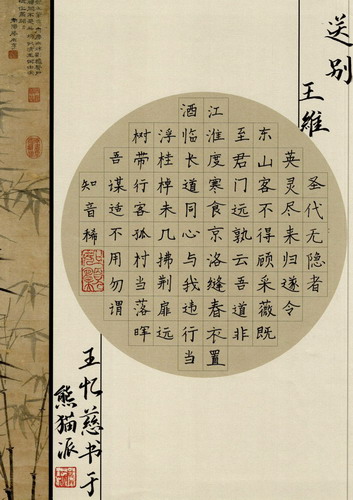 送别
王维
圣代无隐者
英灵尽来归遂令
东山客不得顾采薇既
至君门远孰云吾道非
江淮度寒食京洛缝春衣置
酒临长道同心与我违行当
浮桂棹未几拂荆扉远
树带行客孤村当落晖
吾谋适不用勿谓
知音稀
王忆慈书于
熊猫派